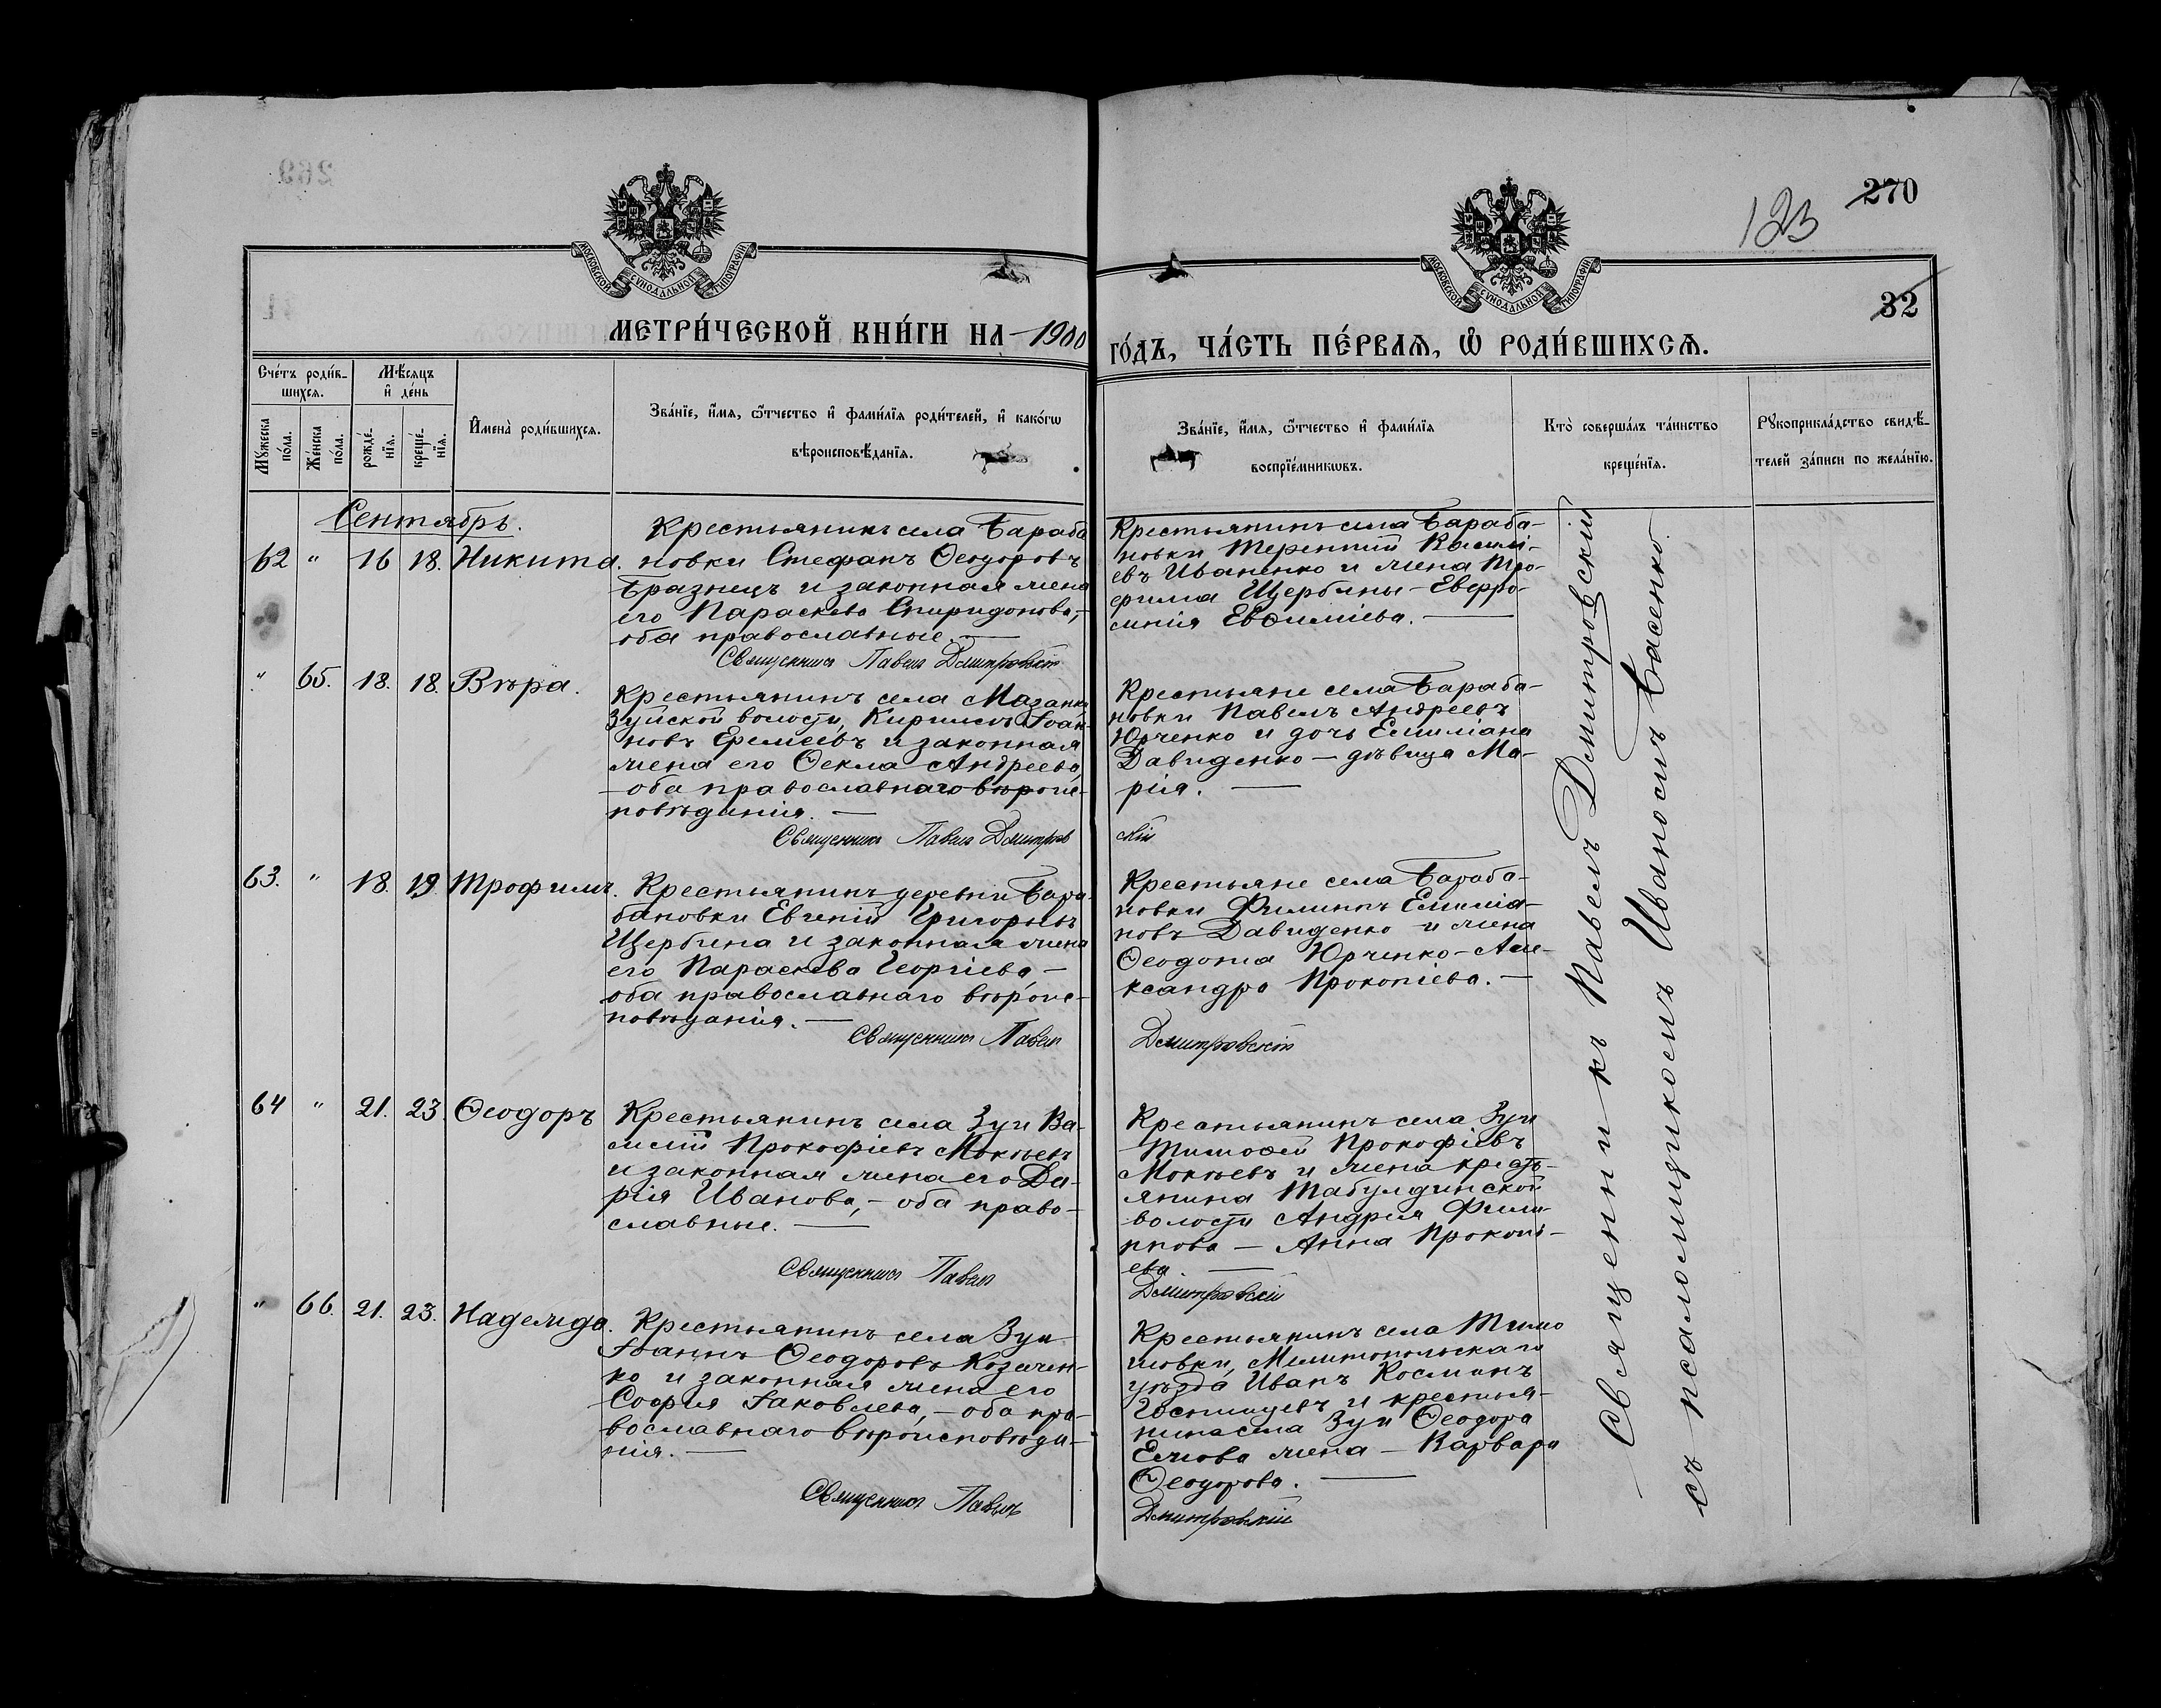 270
123
32
МОСКОВСКОЙ СѴНОДАЛЬНОЙ ТИПОГРАФІИ
МОСКОВСКОЙ СѴНОДАЛЬНОЙ ТИПОГРАФІИ
МЕТРИ́ЧЕСКОЙ КНИ́ГИ НА 1900
ГО́ДЪ, ЧА́СТЬ ПЕ́РВАЯ, Ѡ҆ РОДИ́ВШИХСѦ.
Сче́тъ роди́в-
шихся.
Мѣ́сяцъ
и҆ де́нь
Мꙋ́жеска по́ла.
Же́нска по́ла.
рожде́-
нїя.
креще́-
нїя.
И҆мена̀ роди́вшихся.
Зва́нїе, и҆́мя, ѻ҆́тчество и҆ фами́лїя роди́телей, и҆ како́гѡ
вѣроисповѣ́данїя.
Зва́нїе, и҆́мя, ѻ҆́тчество и҆ фами́лїя
воспрїе́мникѡвъ.
Кто̀ соверша́лъ та́инство
креще́нїя.
Рꙋкоприкла́дство свидѣ́-
телей за́писи по жела́нїю.
Сентябрь.
62 " 16 18. Никита.
Крестьянинъ села Бараба
новки Стефанъ Ѳеодоровъ
Бразнецъ и законная жена
его Параскева Спиридонова,-
оба православные.—
Священникъ Павелъ Дмитровскій
Крестьянинъ села Бараба-
новки Терентий Васили-
евъ Иваненко и жена Тро-
фима Щербины - Евфро-
синія Евѳиміева. —
" 65. 18. 18. Вѣра.
Крестьянинъ села Мазанки
Зуйской волости, Кириллъ Іоан-
новъ Еремеевъ и законная
жена его Ѳекла Андреева,
- оба православнаго вѣроис-
повѣданія. —
Священникъ Павелъ Дмитров
Крестьяне села Бараба-
новки Павелъ Андреевъ
Юрченко и дочь Емиліана
Давиденко — дѣвица Ма-
рія. —
скій
63. " 18. 19. Трофимъ.
Крестьянинъ деревни Бара-
бановки Евгеній Григорьевъ
Щербина и законная жена
его Параскева Георгіева —
оба православнаго вѣроис-
повѣданія. —
Священникъ Павелъ
Крестьяне села Бараба-
новки Филиппъ Емилiа-
новъ Давиденко и жена
Ѳеодота Юрченко - Але-
ксандра Прокопіева. —
Дмитровскій
64 " 21. 23. Ѳеодоръ
Крестьянинъ села Зуи Ва-
силій Прокофіевъ Мокѣевъ
и законная жена его Да-
рія Иванова, - оба право-
славные. —
Священникъ Павелъ
Крестьянинъ села Зуи
Тимоѳей Прокофіевъ
Мокѣевъ и жена кресть-
янина Табулдинской
волости Андрея Фили-
ппова — Анна Прокопі-
ева —
Дмитровскій
" 66. 21. 23. Надежда.
Крестьянинъ села Зуи
Іоаннъ Ѳеодоровъ Козачен-
ко и законная жена его
Софія Іаковлева, - оба пра-
вославнаго вѣроисповѣда-
нія. —
Священникъ Павелъ
Крестьянинъ села Тимо
шовки, Мелитопольскаго
уѣзда Иванъ Косминъ
и крестья-
нина села Зуи Ѳеодора
жена — Варвара
Ѳеодорова. —
Дмитровскій
Священникъ Павелъ Дмитровскій
съ псаломщикомъ Иваномъ Басенко.